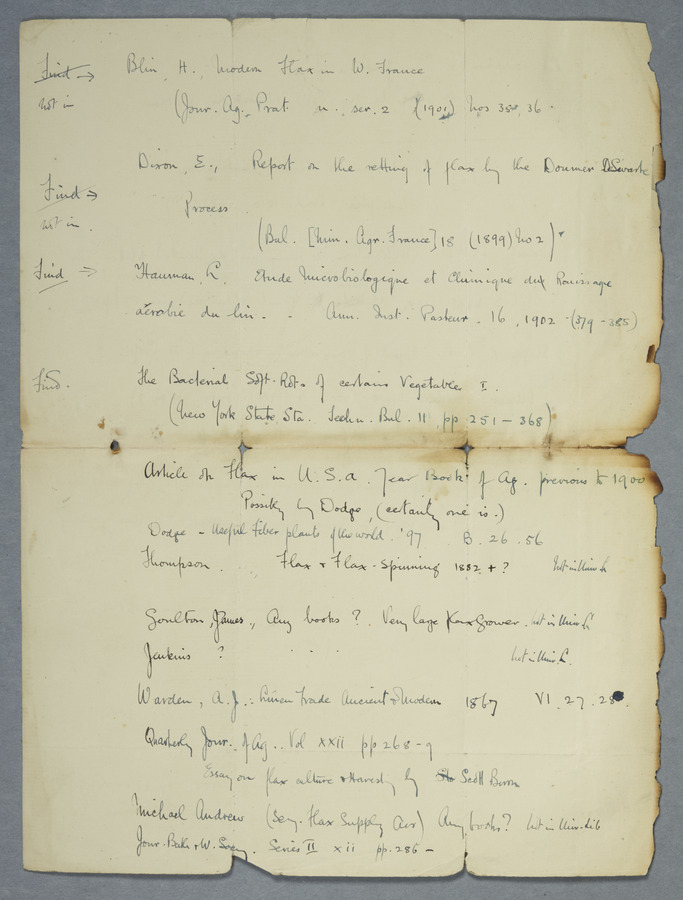 Find → Blin, H., Modern Flax in W. France
not in (Jour. Ag. Prat. n. ser. 2 (1901) Nos 35, 36.
Dixon, E., Report on the retting of flax by the Doumer DeSwarte
Find →
Process
not in.
(Bul. [Min. Agr. France] 18 (1899) No 2)
Find → Hauman, L. Etude Microbiologique et Chimique du Rouissage
aérobie du lin. - Ann. Inst. Pasteur. 16, 1902 - (379 - 385)
Find. The Bacterial Soft-Rots of certain Vegetables I.
(New York State Sta. Techn. Bul. 11 pp 251 - 368)
Article on Flax in U.S.A. Year Book of Ag. previous to 1900
Possibly by Dodge, (certainly one is.)
Dodge - Useful Fiber plants of the world. '97 B. 26. 56
Thompson. Flax & Flax-Spinning 1882 + ? Not in Univ L
Goulton, James, Any books? Very large Flax Grower. Not in Univ L
Jenkins ? Not in Univ. L.
Warden, A. J.: Linen Trade Ancient & Modern 1867 VI. 27. 28.
Quarterly Jour. of Ag.. Vol xxii pp 268-9
Essay on flax culture & Harvest by Scott Burn
Michael Andrew (Sey. Flax Supply Ass) Any books? Not in Univ. Lib
Jour. Bath & W. Soc. Series II xii pp. 286 -